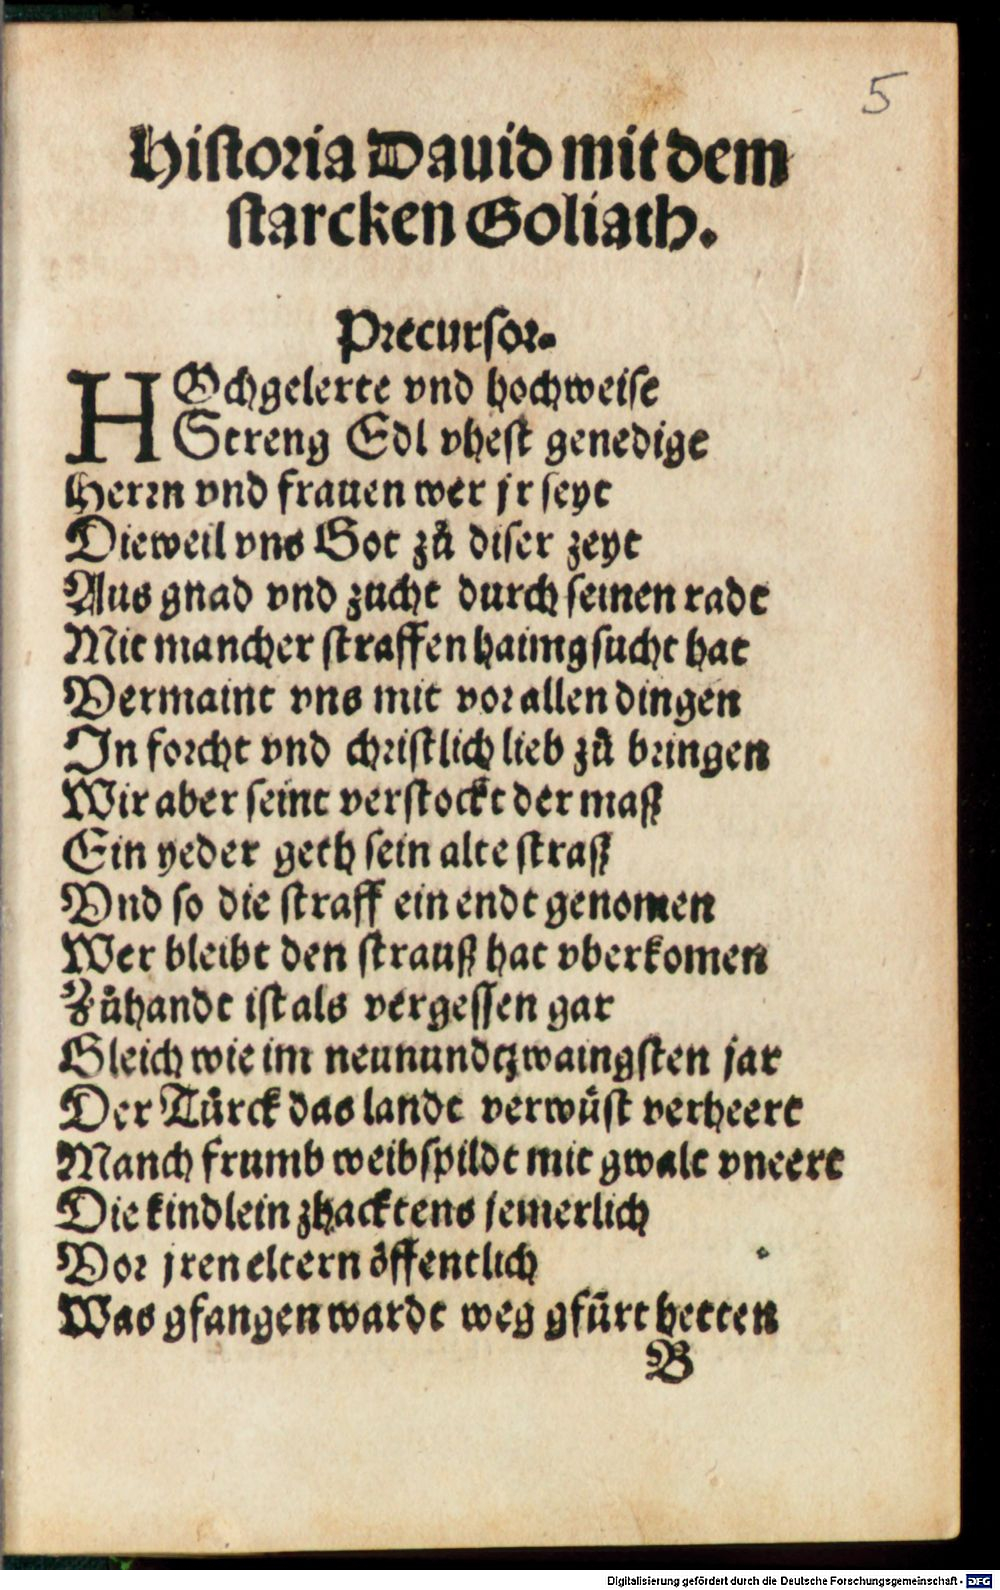 5
Historia Dauid mit dem
starcken Goliath.
Precursor.
HOchgelerte vnd hochweise
Streng Edl vhest genedige
Herrn vnd frauen wer jr seyt
Dieweil vns Got zů diser zeyt
Aus gnad vnd zucht durch seinen radt
Mit mancher straffen haimgsucht hat
Vermaint vns mit vor allen dingen
In forcht vnd christlich lieb zů bringen
Wir aber seint verstockt der maß
Ein yeder geth sein alte straß
Vnd so die straff ein endt genomen
Wer bleibt den strauß hat vberkomen
Zůhandt ist als vergessen gar
Gleich wie im neunundtzwaingsten jar
Der Türck das landt verwüst verheert
Manch frumb weibspildt mit gwalt vneert
Die kindlein zhacktens jemerlich
Vor jren eltern öffentlich
Was gfangen wardt weg gfürt hetten
B
Digitalisierung gefördert durch die Deutsche Forschungsgemeinschaft - DFG